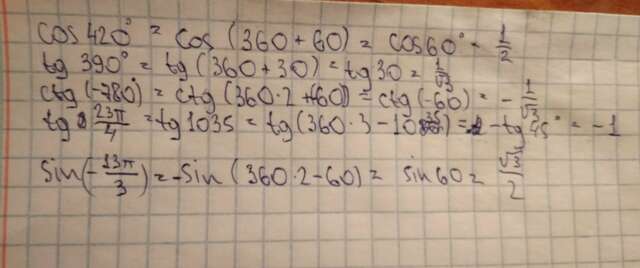 cos 420° = cos (360 + 60) = cos 60° = 1/2
tg 390° = tg (360 + 30) = tg 30 = 1/√3
ctg (-780°) = ctg (360·2 + 60) = ctg (-60) = - 1/√3
tg 23π/4 = tg 1035 = tg (360·3 - ) = - tg 45° = -1
sin (- 13π/3) = - sin (360·2 - 60) = sin 60 = √3/2